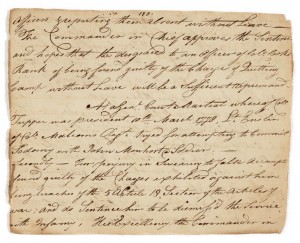 officers reporting them absent without leave
The Commander in Chief approves the Sentence
and hopes that the disgrace to an officer of Col. 
Rank of being found guilty of the Charge of Quitting
Camp without Leave will be a Sufficient reprimand
At a Gen! Court Martial whereof Coll
Tupper was president 10th March 1778 Lt Enslin
of Col Malcoms Reg! tryed for attempting to Commit
Sodomy with John Monhort a Soldier
Secondly For perjury in Swearing to false accounts
found guilty of the Charges exhibited against him
being breaches of the 5 Article 18 Section of the Articles of
war and do Sentence him to be dismiss'd the Service
with Infamy His Excellency the Commander in